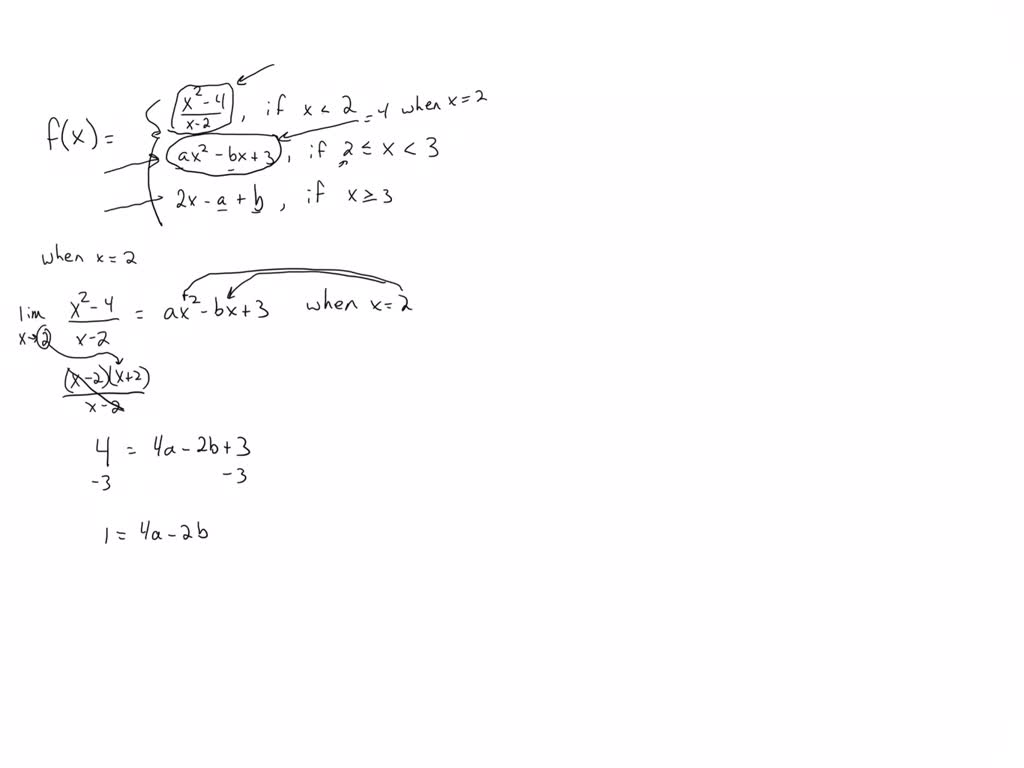 f(x) = { (x² - 4)/(x - 2), if x < 2 = 4 when x = 2
ax² - bx + 3, if 2 ≤ x < 3
2x - a + b, if x ≥ 3
when x = 2
lim x→2 (x² - 4)/(x - 2) = ax² - bx + 3 when x = 2
(x - 2)(x + 2)/(x - 2)
4 = 4a - 2b + 3
-3 -3
1 = 4a - 2b